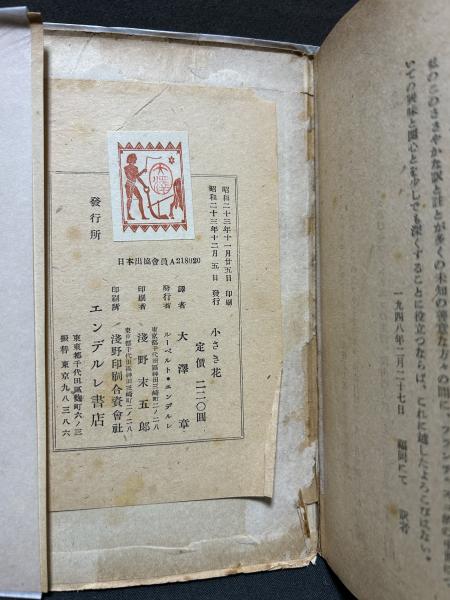 私のこのささやかな訳と註とが多くの未知の善意な方々の間に、フランチェス
いての興味と関心とを少しでも深くすることに役立つならば、これに越したよろこびはない。
一九四八年二月二十七日　福岡にて　訳者
大澤
昭和二十三年十一月廿五日 印刷
昭和二十三年十二月五日 發行
日本出協會員A218020
小さき花
定價 二二〇圓
譯者 大澤章
發行者 ルーペルト・エンデルレ
東京都千代田區神田三崎町二ノ二八
印刷者 淺野末五郎
東京都千代田區神田三崎町二ノ二八
印刷所 淺野印刷合資會社
發行所 エンデルレ書店
東京都千代田區麴町六ノ三
振替東京九八三八六